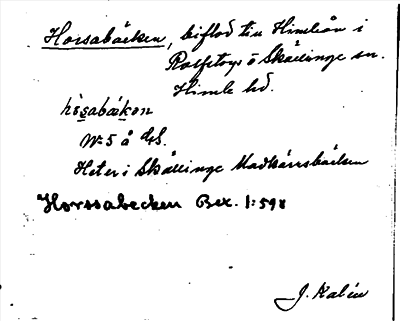 Horsabäcken, biflod till Himleån i
Rolfstorps o Skällinge sn.
Himle hd.
hòsabækon
N:5 å
Heter i Skällinge Madkärrsbäcken
Horssabecken Bex. 1:598
J. Kalén